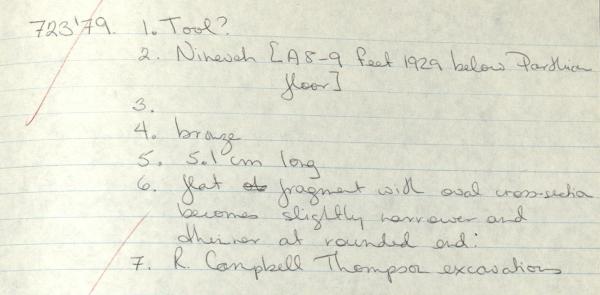 723'79. 1. Tool?
2. Nineveh [A8-9 feet 1929 below Parthian
floor]
3.
4. bronze
5. 5.1 cm long
6. flat fragment with oval cross-section
becomes slightly narrower and
thinner at rounded end:
7. R. Campbell Thompson excavations